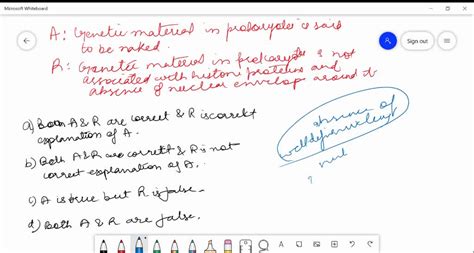 Microsoft Whiteboard
Sign out
A: Genetic material in prokaryote is said
to be naked.
R: Genetic material in prokaryote is not
associated with histone proteins and
absence of nuclear envelop around it
a) Both A & R are correct & R is correct
explanation of A.
b) Both A & R are correct & R is not
correct explanation of A.
c) A is true but R is false.
d) Both A & R are false.
absence of
well defined nucleus